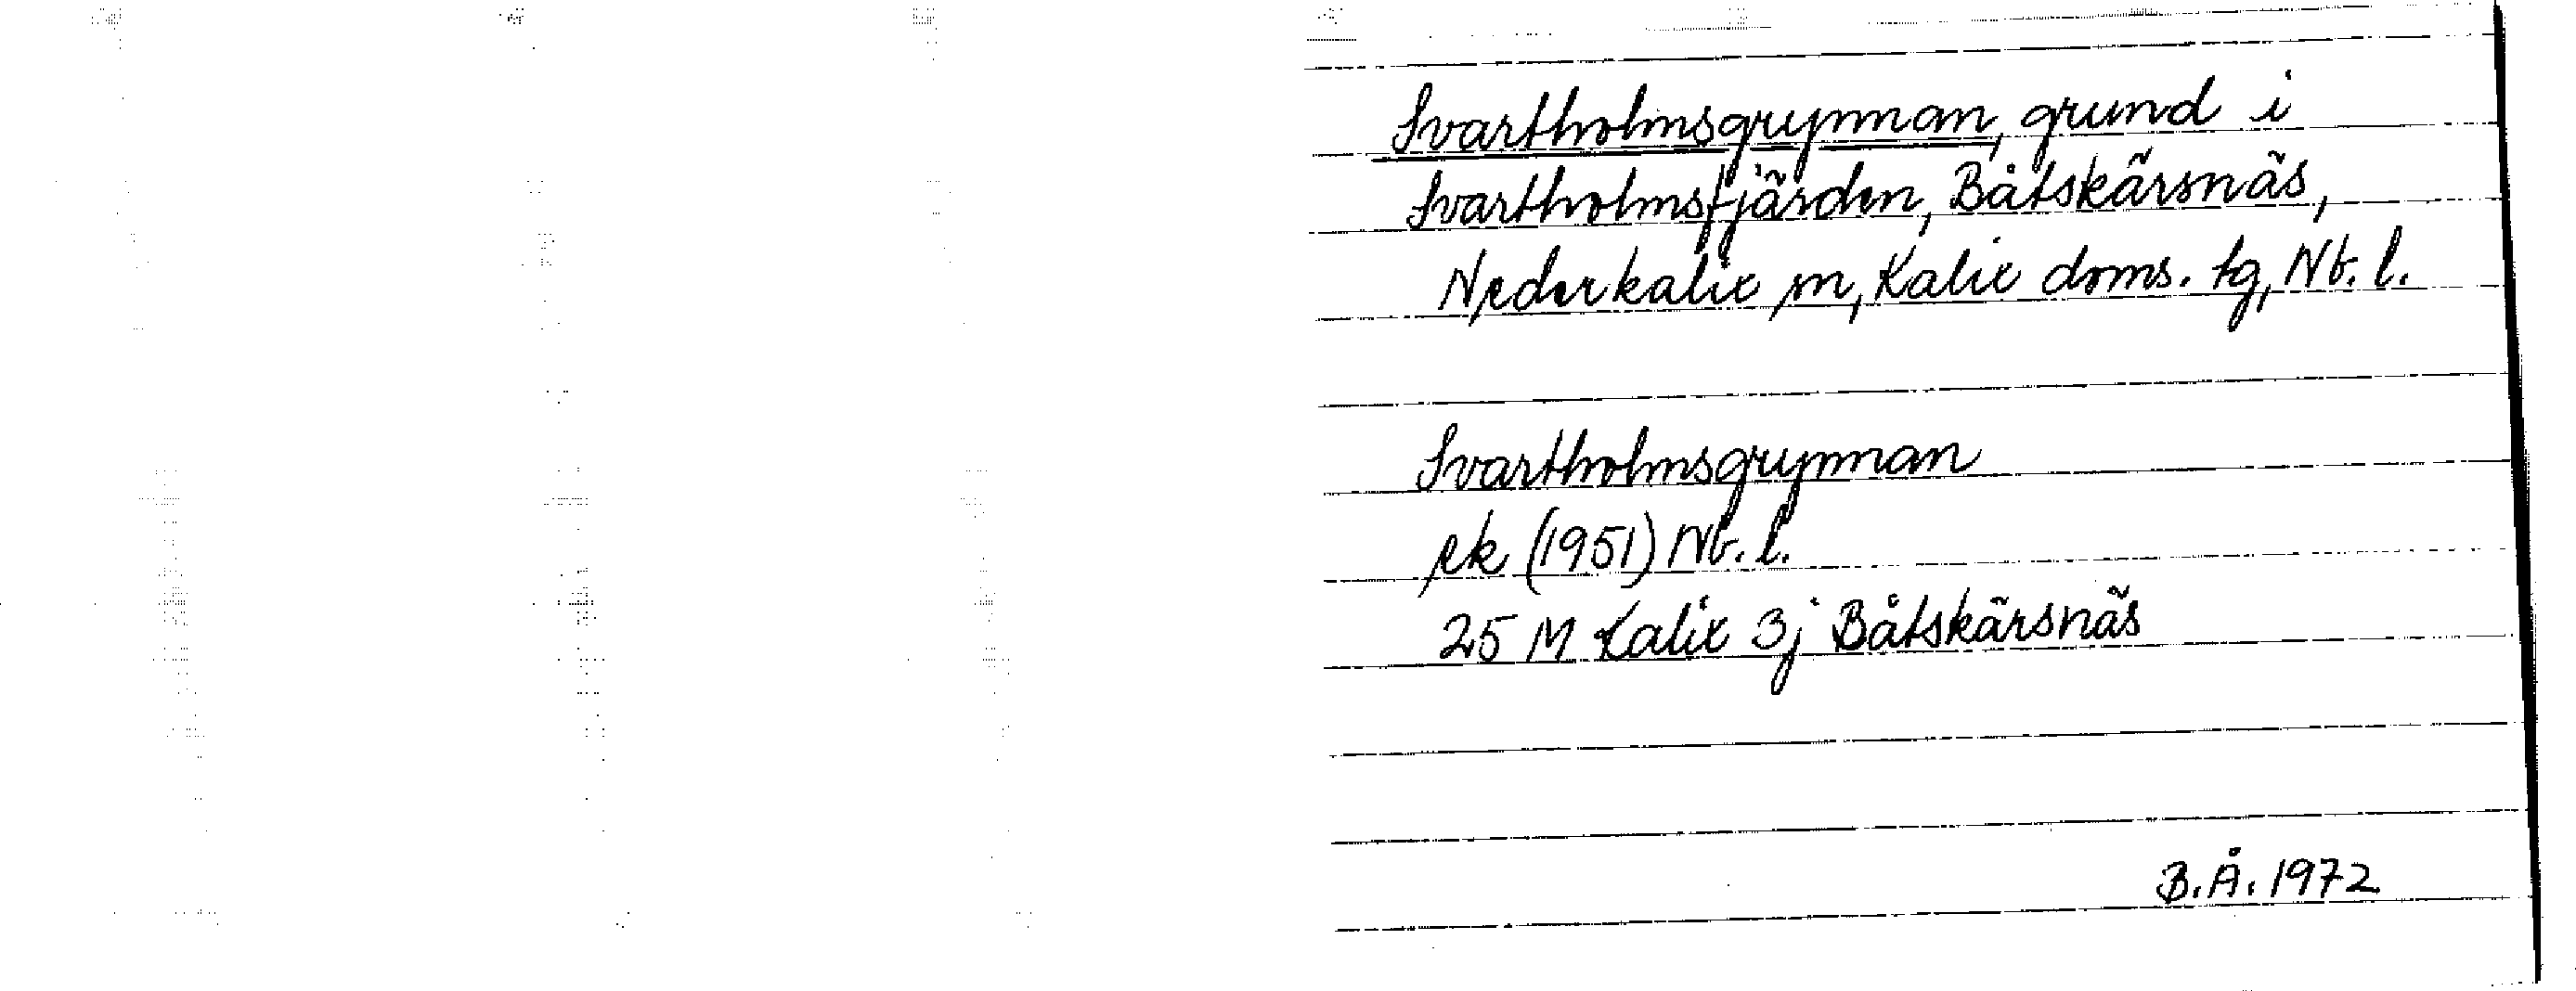 Svartholmsgrynnan, grund i
Svartholmsfjärden, Båtskärsnäs,
Nederkalix sn, Kalix doms. tg, Nb. l.
Svartholmsgrynnan
ek (1951) Nb. l.
25 M Kalix 3j Båtskärsnäs
B.Å. 1972